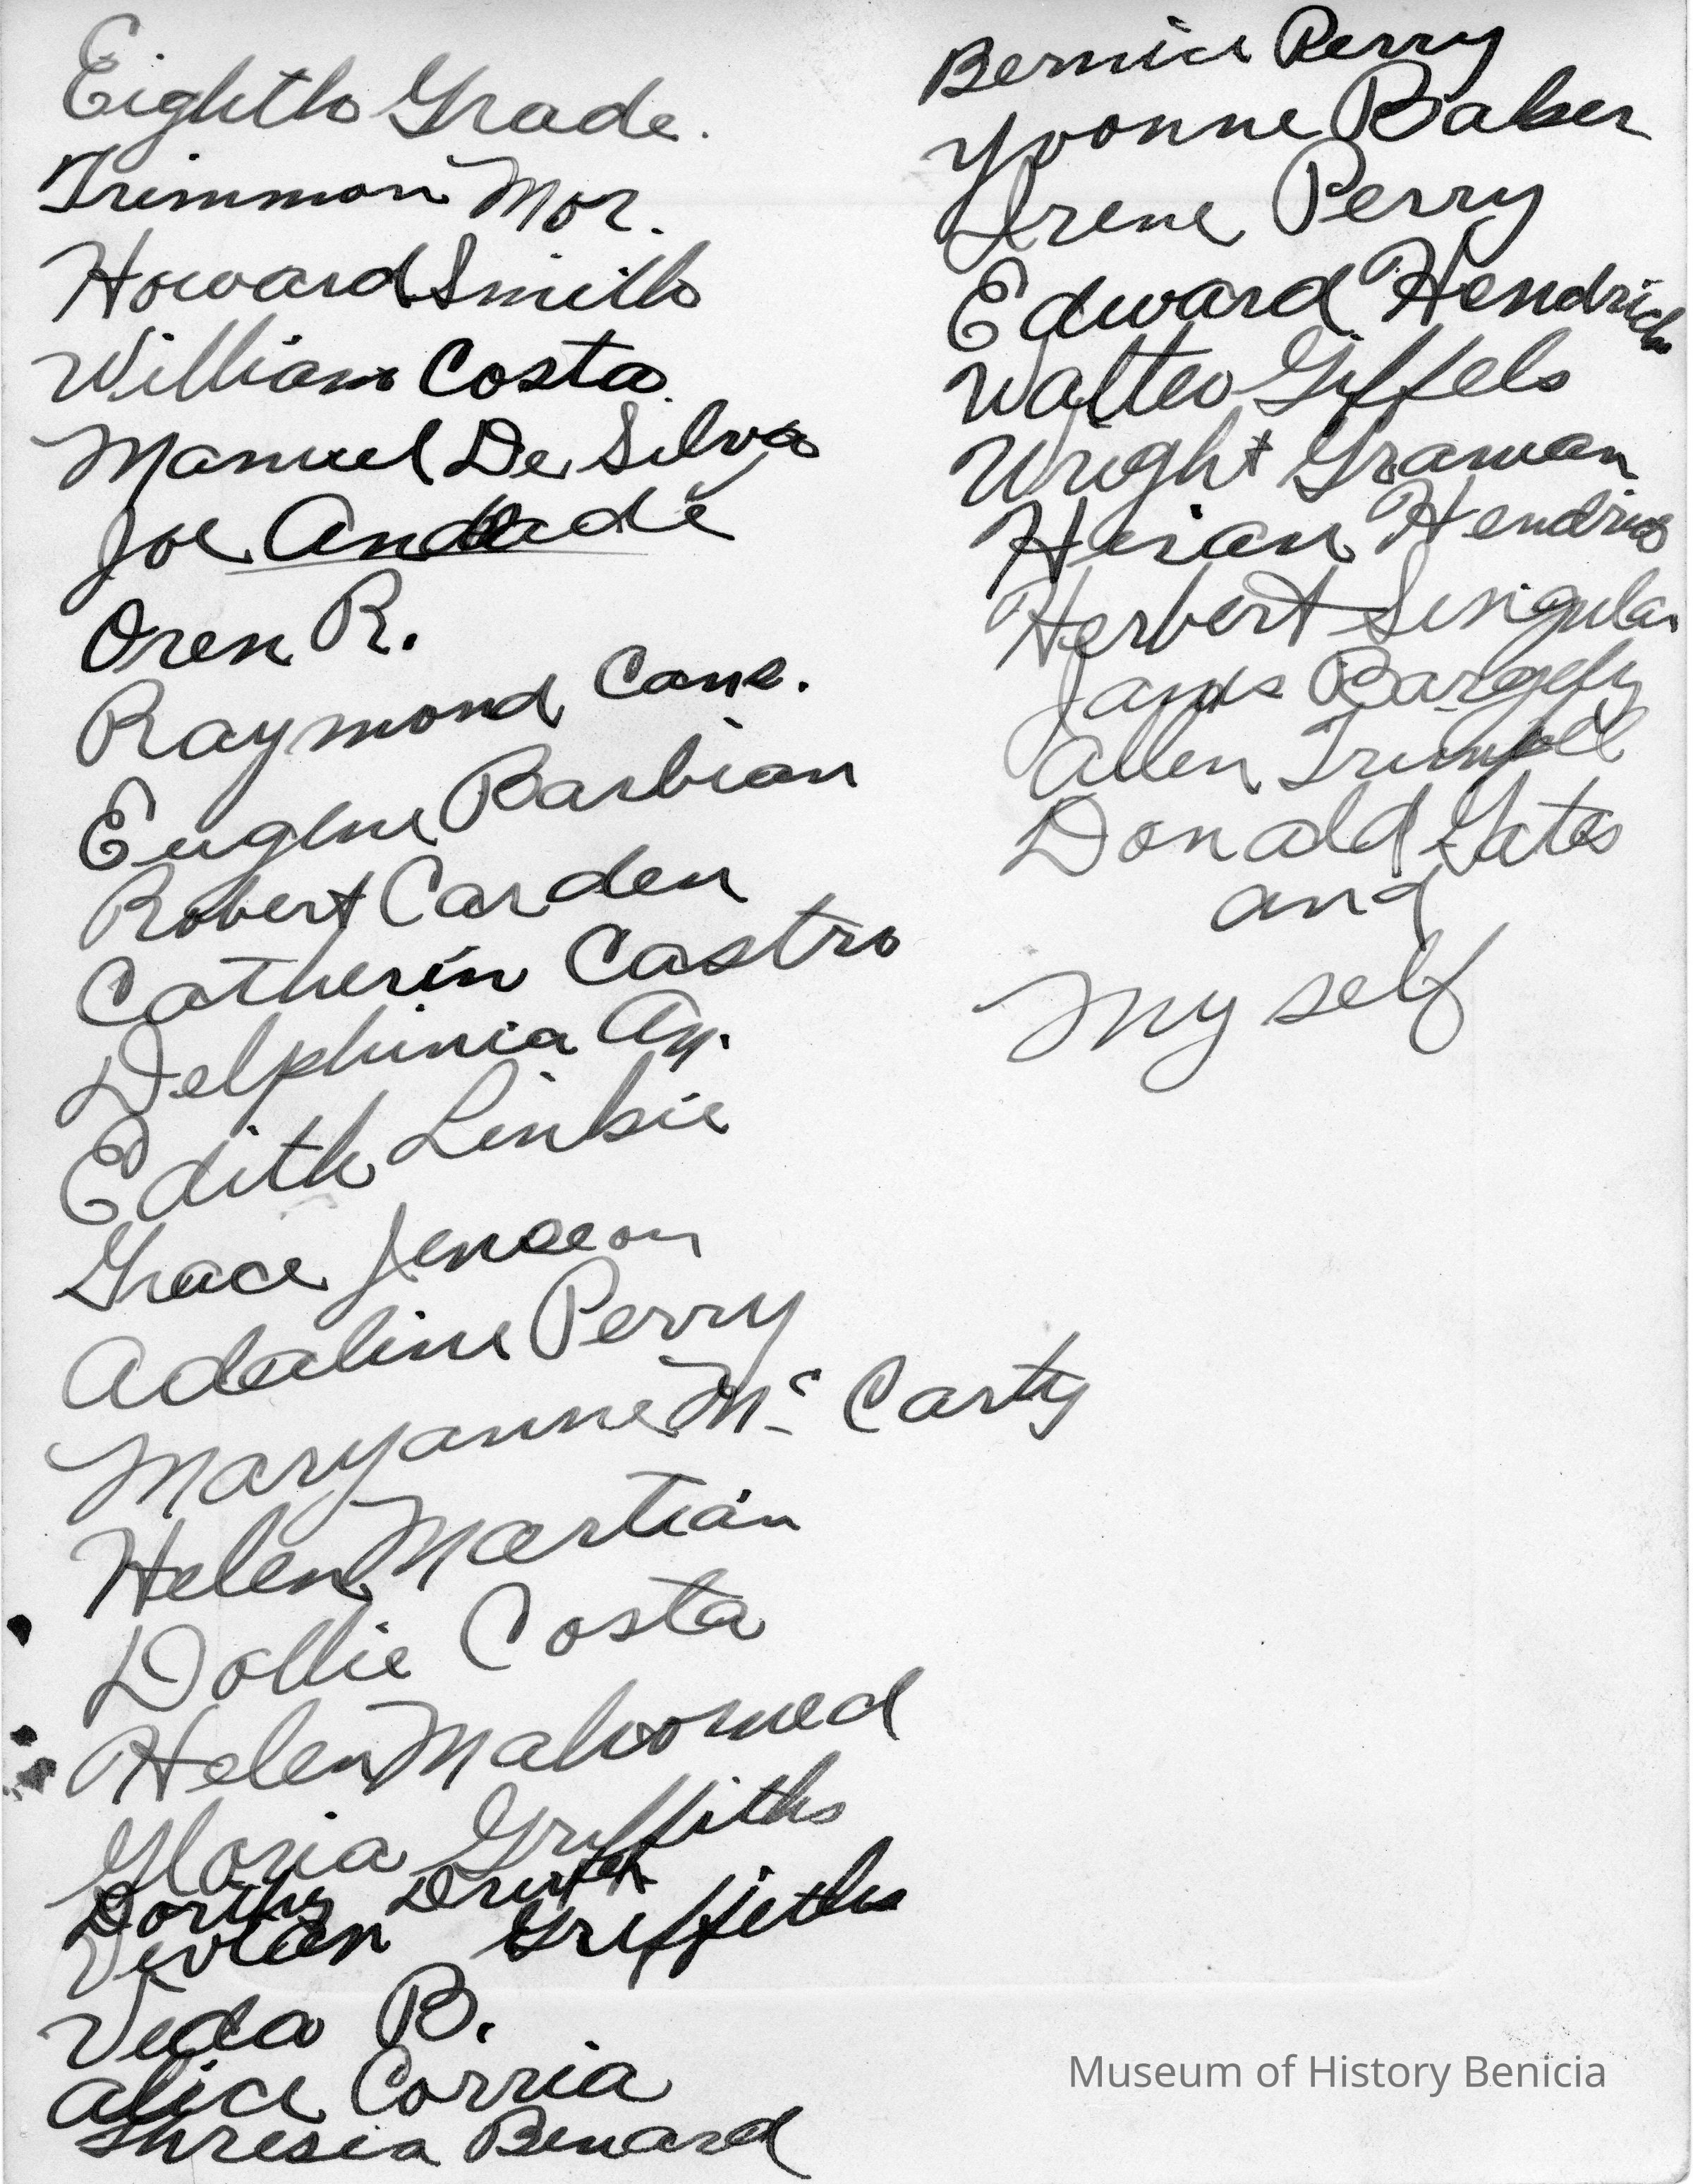 Eighth Grade.
Trimmon Mor.
Howard Smith
William Costa.
Manuel De Silva
Joe Andrade
Oren R.
Raymond Cane.
Eugene Barbian
Robert Carden
Catherin Castro
Delphinia Ay.
Edith Linkie
Grace Jenseon
Adaline Perry
Maryanne Mc Carty
Helen Martian
Dollie Costa
Helen Mahomed
Gloria Griffiths
Dorthy
Vivian Griffiths
Veda B.
Alice Corria
Thresia Benard
Bernice Perry
Yvonne Baker
Irene Perry
Edward Hendrick
Walter Giffels
Wright Graman
Hiran Hendrics
Herbert Singular
James
Allen
Donald Gates
and
My self
Museum of History Benicia